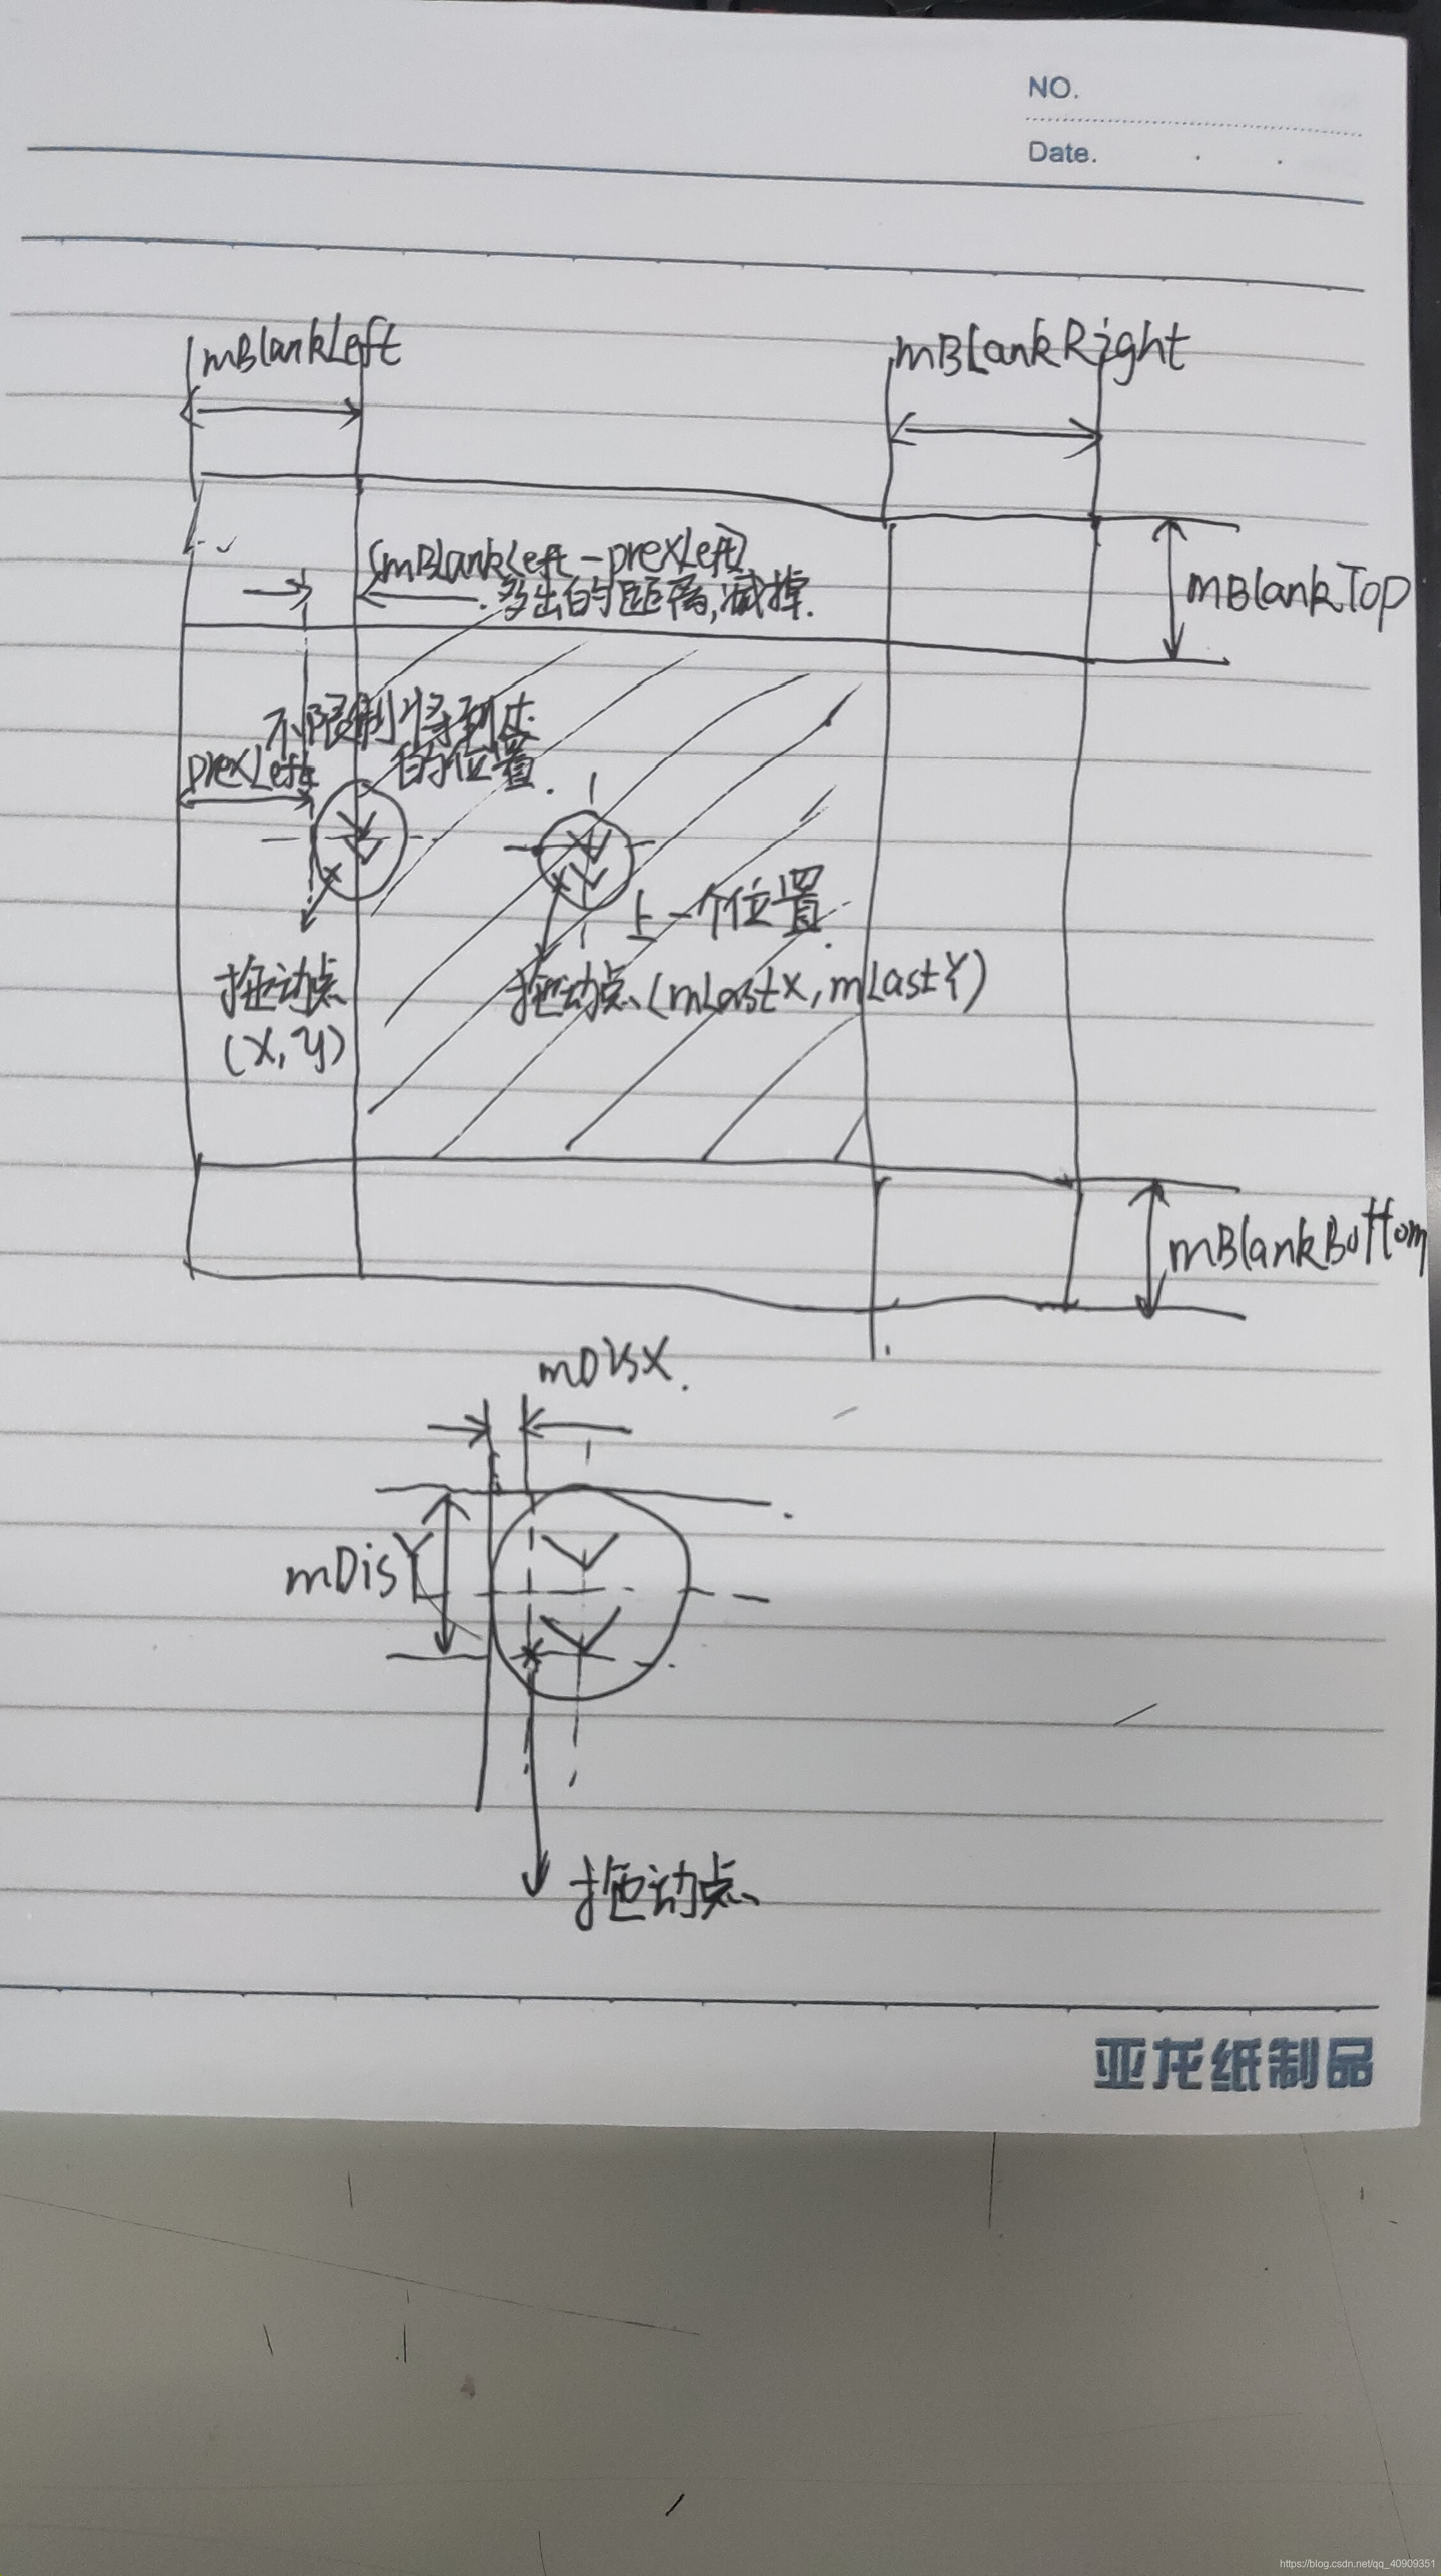 NO.
Date.
mBlankLeft
mBlankRight
(mBlankLeft-prexLeft)
多出的距离,减掉.
mBlankTop
不限制将到达
的位置.
prexLeft
上一个位置.
拖动点
(x,y)
拖动点(mLastX,mLastY)
mBlankBottom
mDisX.
mDisY
拖动点
亚龙纸制品
https://blog.csdn.net/qq_40909351